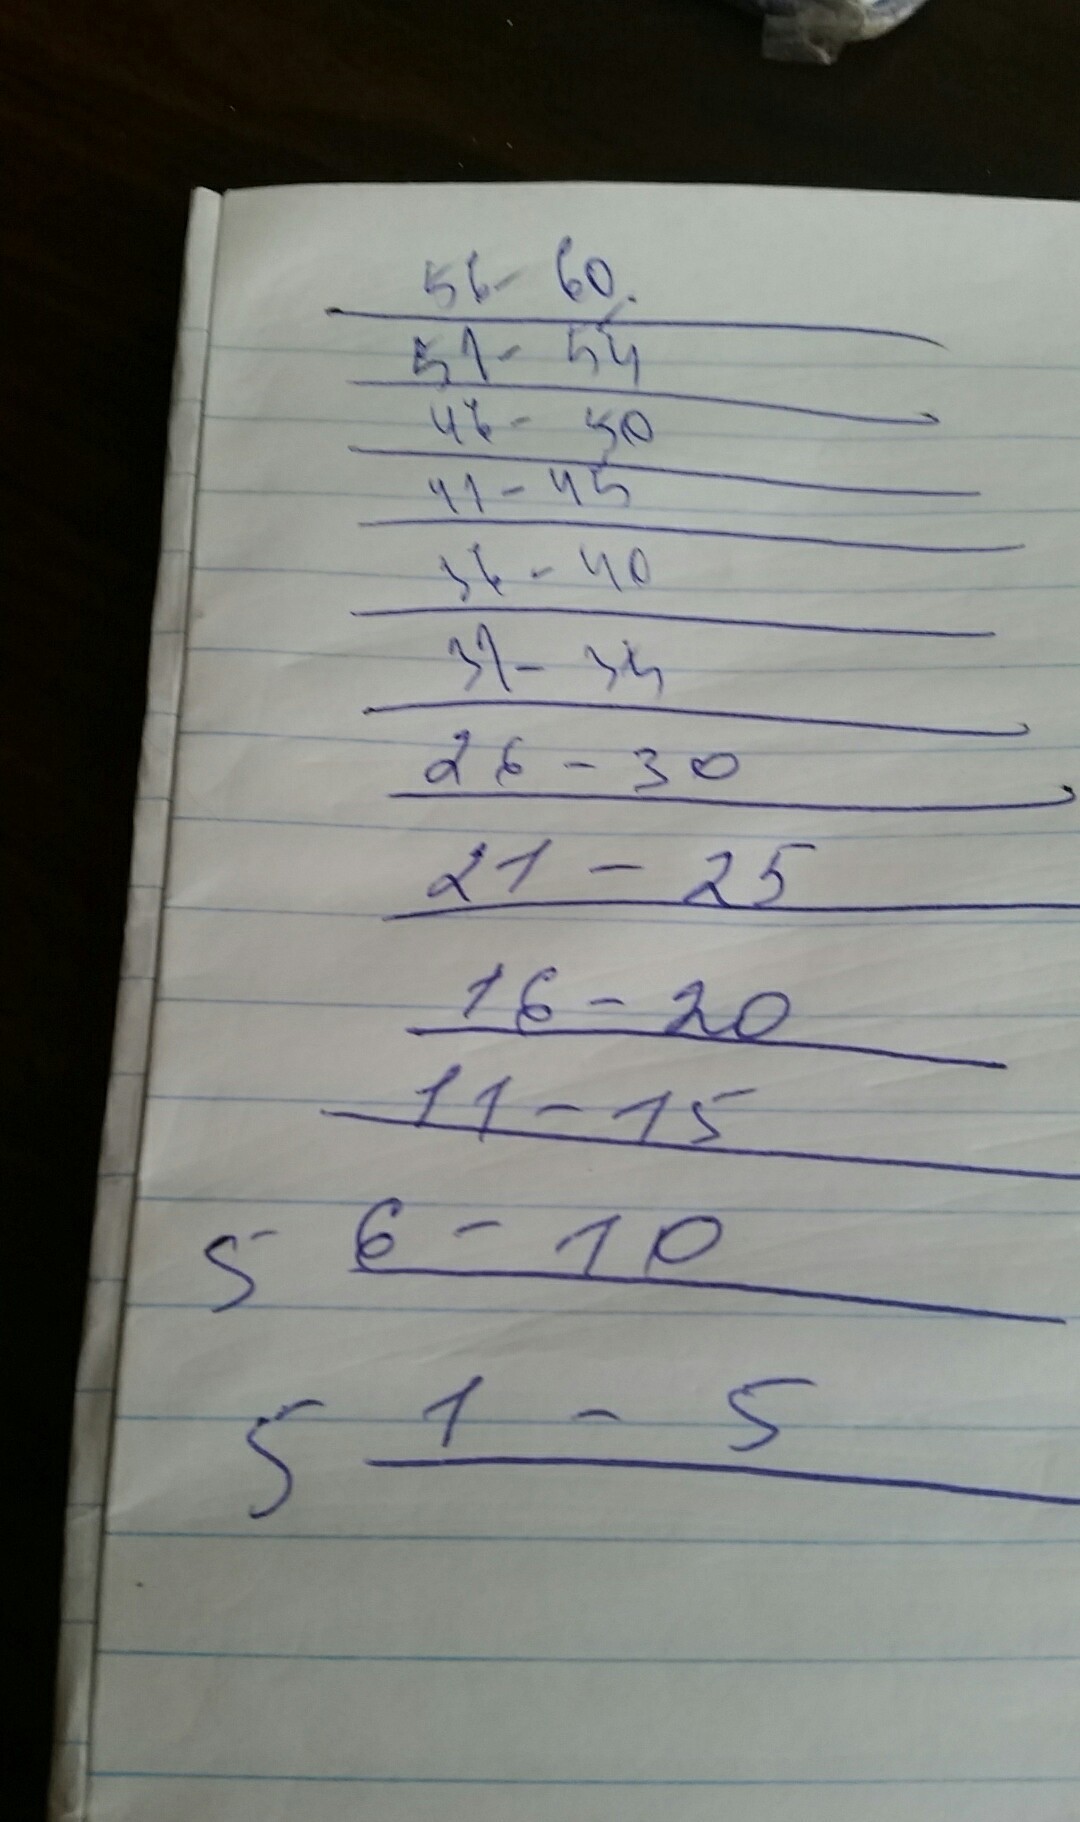 56 - 60.
51 - 54
46 - 50
41 - 45
36 - 40
31 - 35
26 - 30
21 - 25
16 - 20
11 - 15
5 6 - 10
5 1 - 5